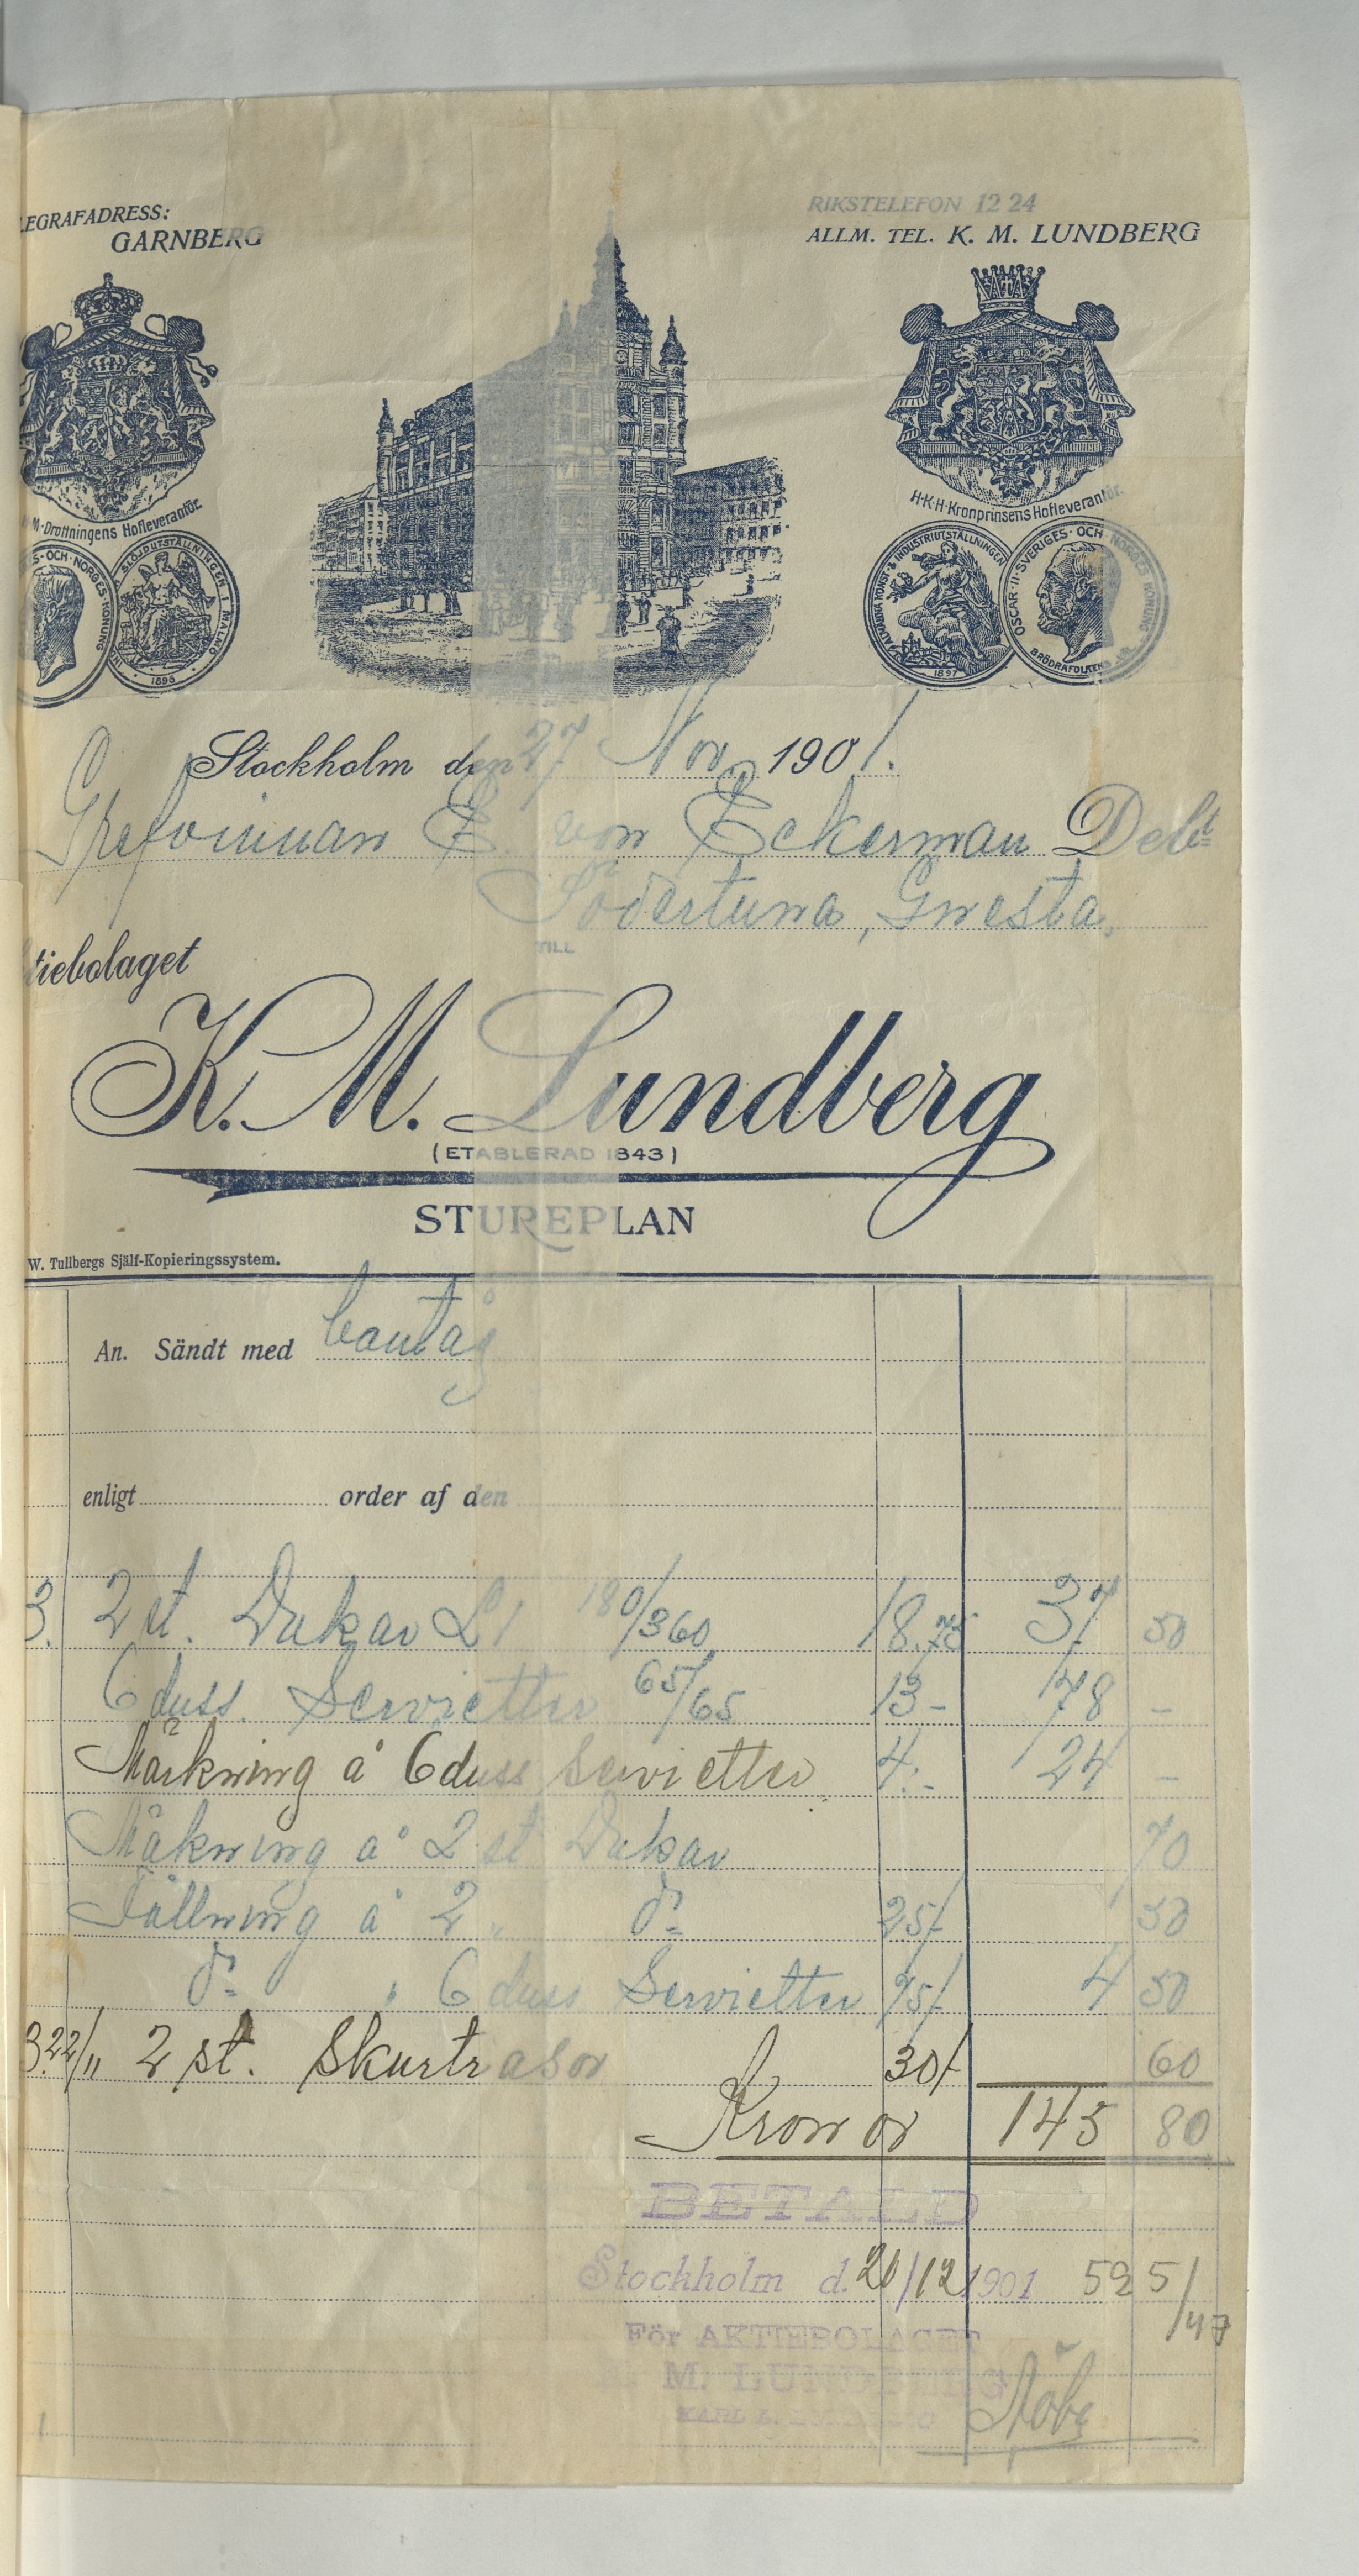 LEGRAFADRESS:
GARNBERG
RIKSTELEFON 12 24
ALLM. TEL. K. M. LUNDBERG
M·Drottningens Hofleverantör.
H·K·H·Kronprinsens Hofleverantör.
S·OCH·NORGES KONUNG
SLÖJDUTSTÄLLNINGEN I MALMÖ
1896
ALLMÄNNA KONST- & INDUSTRIUTSTÄLLNINGEN
1897
OSCAR·II·SVERIGES·OCH NORGES KONUNG
BRÖDRAFOLKENS
Stockholm den 27 Nov 1901.
Grefvinnan E von Eckerman Debt
Södertuna, Gnesta,
TILL
tiebolaget
K. M. Lundberg
(ETABLERAD 1843)
STUREPLAN
W. Tullbergs Själf-Kopieringssystem.
An. Sändt med bantåg
enligt order af den
3. 2 st. Dukar L1 180/360 18.75 37 50
6 duss. Servietter 65/65 13- 78 -
Märkning å 6 duss servietter 4:- 24 -
Mäkning å 2 st Dukar 70
Fållning å 2 " do 25/- 50
do " 6 duss Servietter 75/- 4 50
3.22/11 2 st. Skurtrasor 30/- 60
Kronor 145 80
BETALD
Stockholm d. 20/12 1901 525/47
För AKTIEBOLAGET
K. M. LUNDBERG